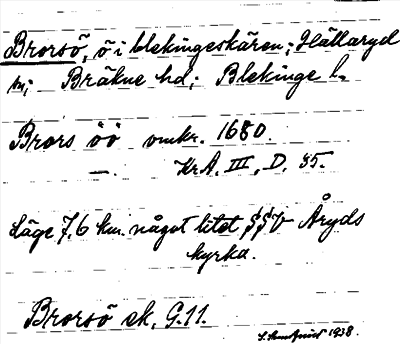 Brorsö, ö i blekingeskären; Hällaryd
sn; Bräkne hd; Blekinge l.
Brors öö omkr. 1680.
—. Kr.A. III, D. 35.
Läge 7,6 km. något litet SSV Åryds
kyrka.
Brorsö ek. G.11.
1938.